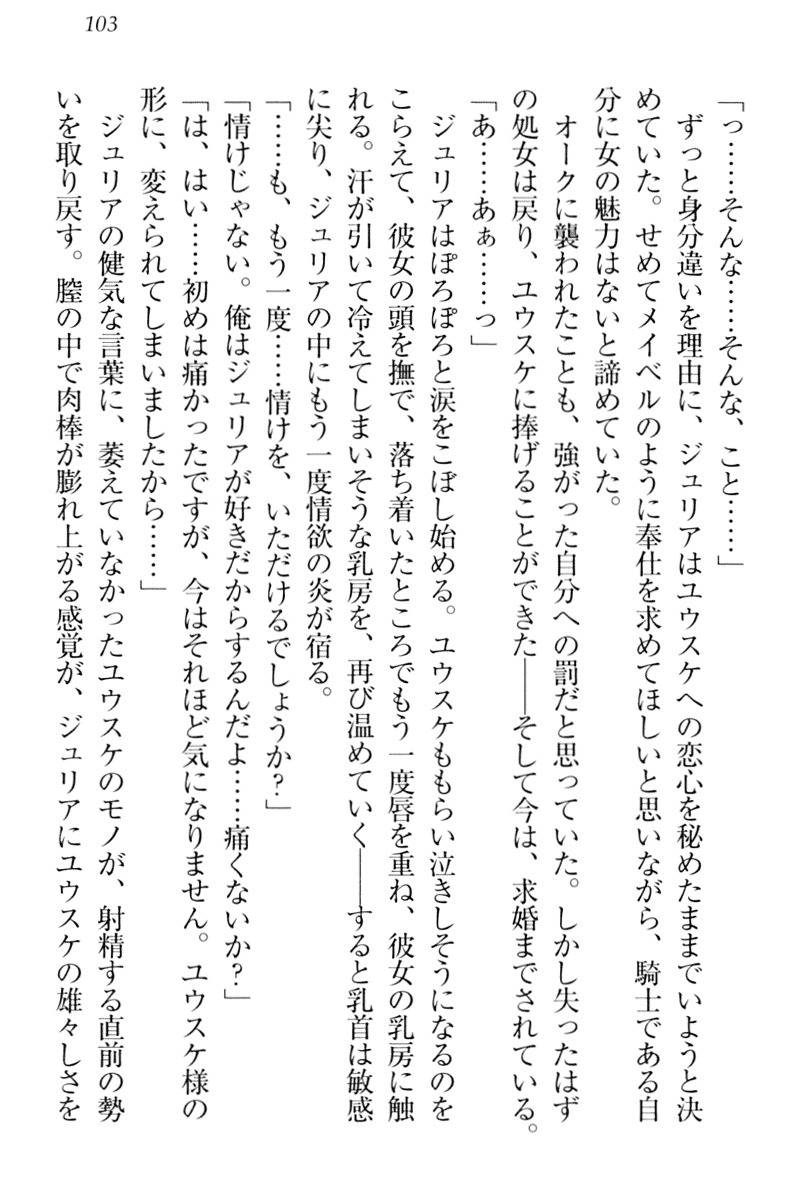 103
「っ……そんな……そんな、こと……」
ずっと身分違いを理由に、ジュリアはユウスケへの恋心を秘めたままでいようと決
めていた。せめてメイベルのように奉仕を求めてほしいと思いながら、騎士である自
分に女の魅力はないと諦めていた。
オークに襲われたことも、強がった自分への罰だと思っていた。しかし失ったはず
の処女は戻り、ユウスケに捧げることができた――そして今は、求婚までされている。
「あ……あぁ……っ」
ジュリアはぽろぽろと涙をこぼし始める。ユウスケももらい泣きしそうになるのを
こらえて、彼女の頭を撫で、落ち着いたところでもう一度唇を重ね、彼女の乳房に触
れる。汗が引いて冷えてしまいそうな乳房を、再び温めていく――すると乳首は敏感
に尖り、ジュリアの中にもう一度情欲の炎が宿る。
「……も、もう一度……情けを、いただけるでしょうか？」
「情けじゃない。俺はジュリアが好きだからするんだよ……痛くないか？」
「は、はい……初めは痛かったですが、今はそれほど気になりません。ユウスケ様の
形に、変えられてしまいましたから……」
ジュリアの健気な言葉に、萎えていなかったユウスケのモノが、射精する直前の勢
いを取り戻す。膣の中で肉棒が膨れ上がる感覚が、ジュリアにユウスケの雄々しさを